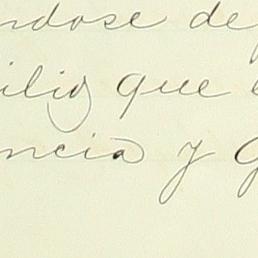 ndose de
ilio que
ncia y